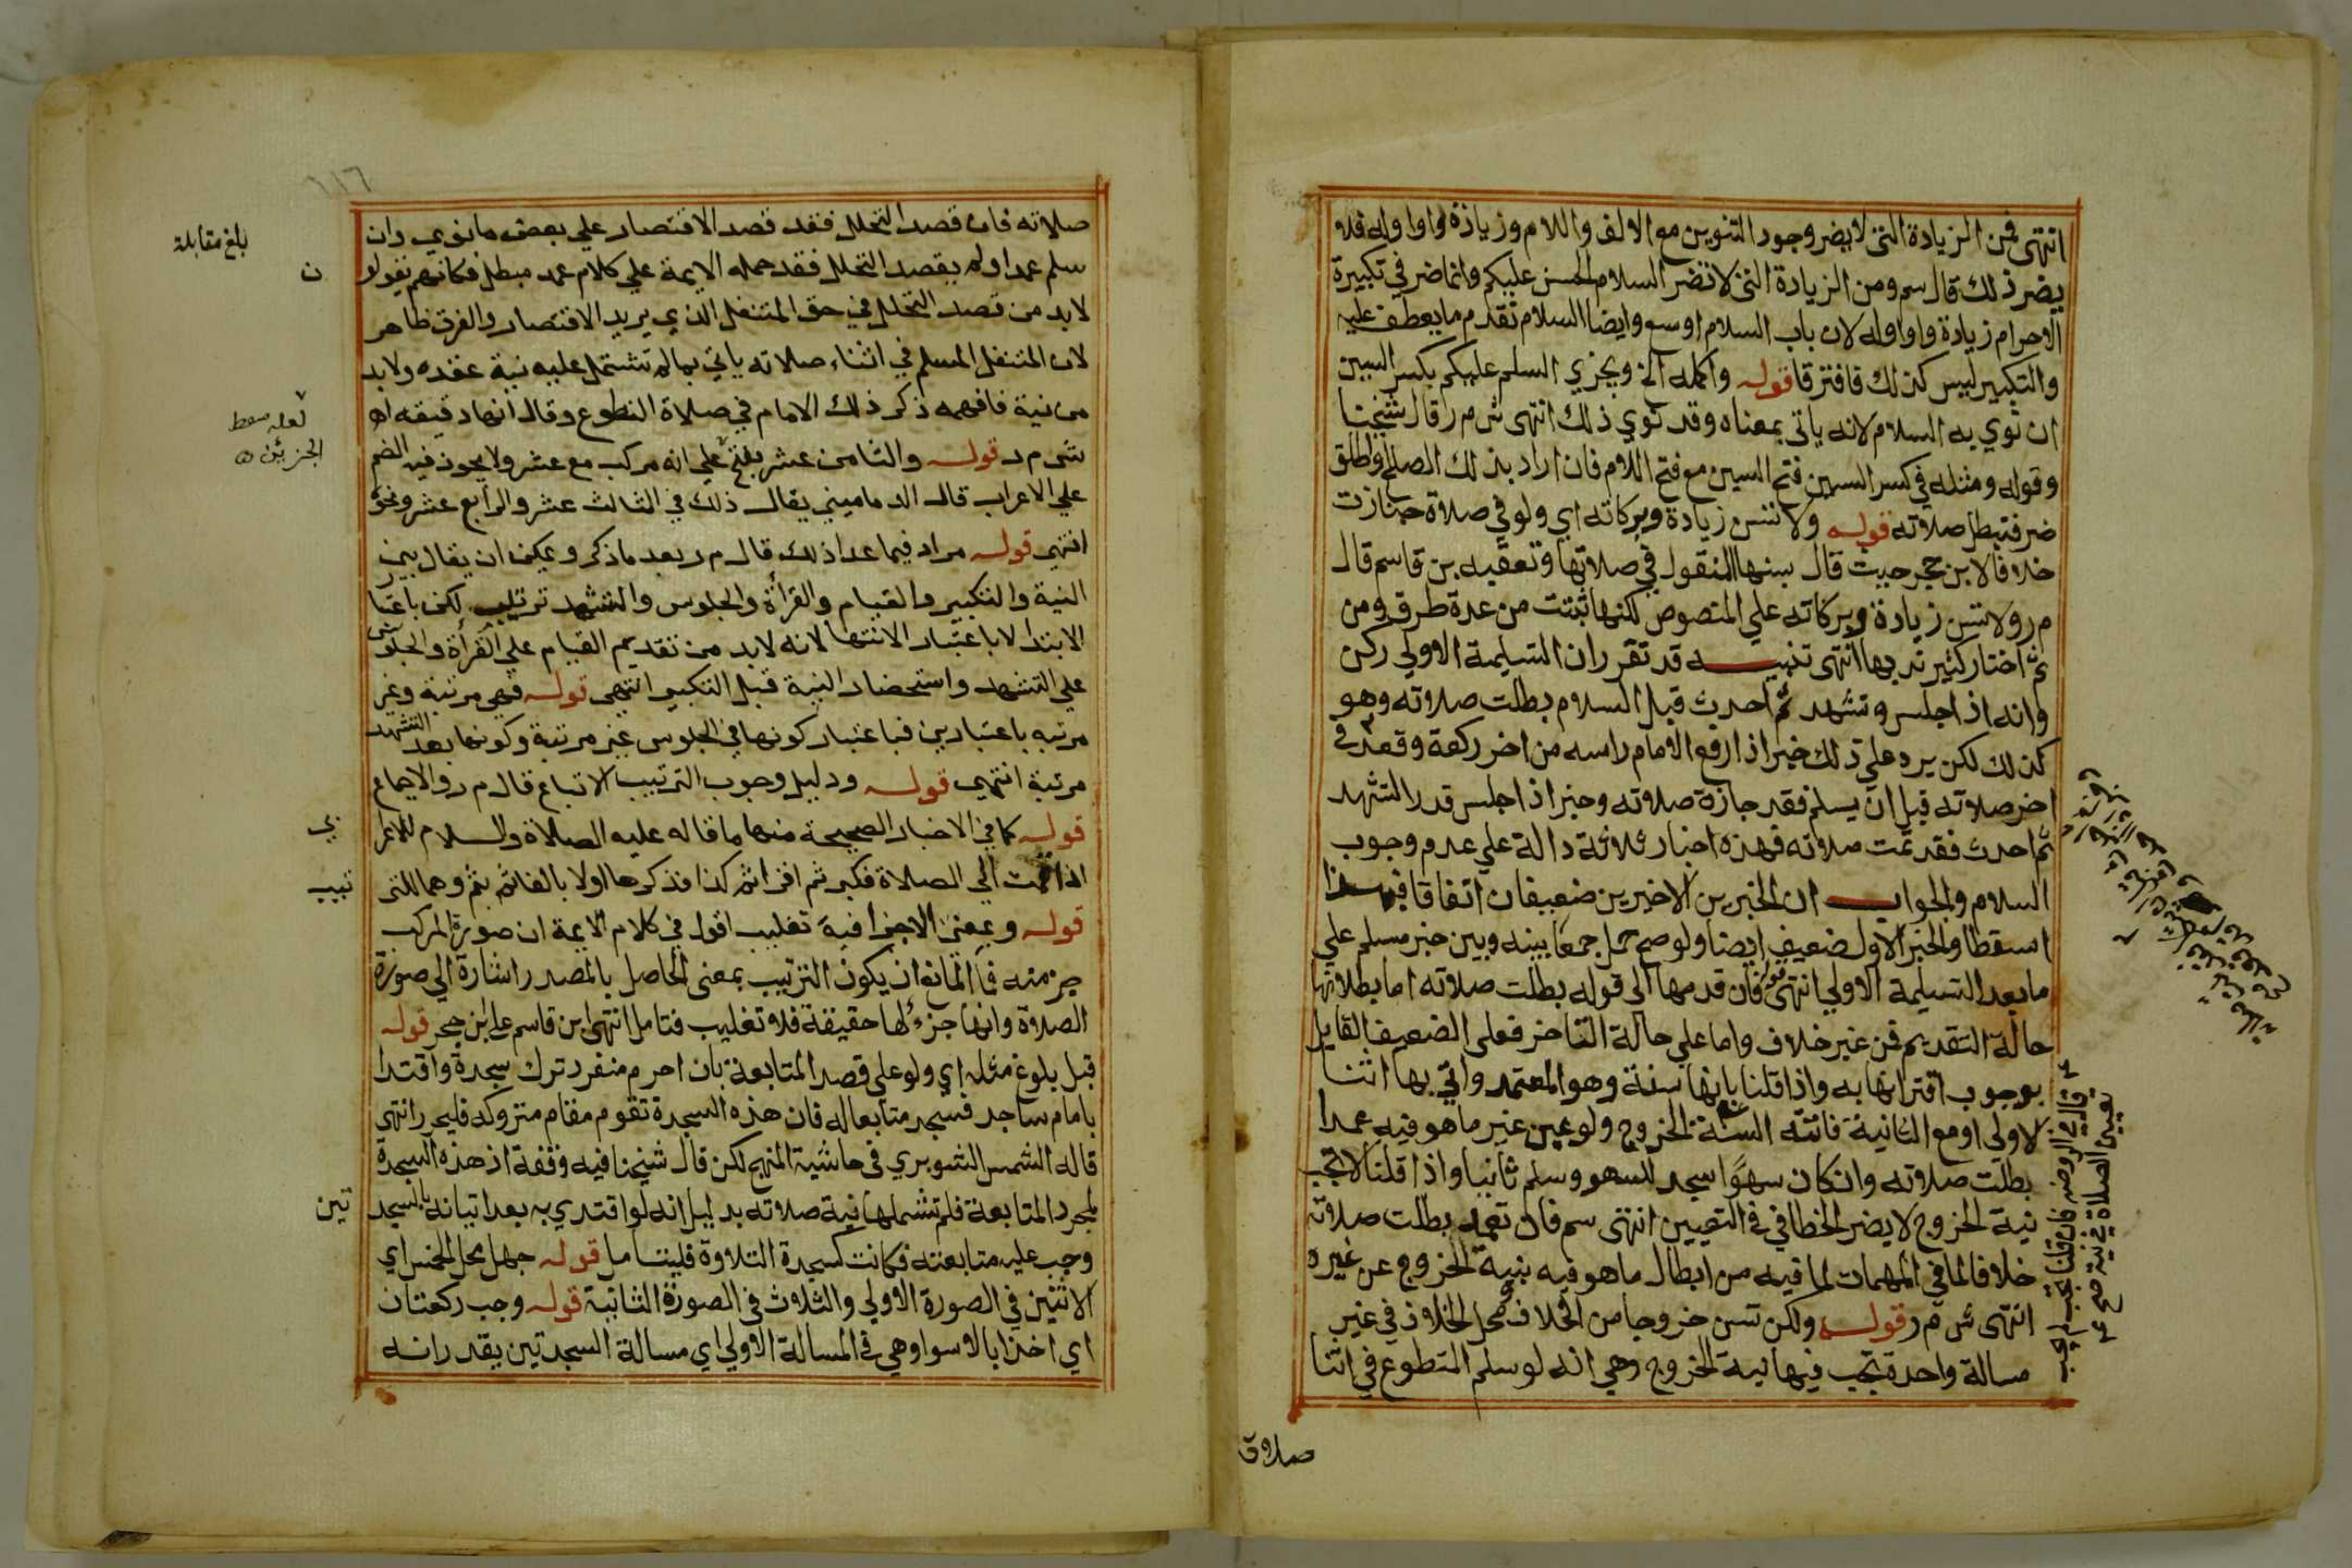 انتهى فمن الزيادة التى لا يضر وجود التنوين مع الالف واللام وزيادة واو اوله فلا
يضر ذلك قال سم ومن الزيادة التى لا تضر السلام الحسن عليكم وانما ضر في تكبيرة
الاحرام زيادة واو اوله لان باب السلام اوسع وايضا السلام تقدم ما يعطف عليه
والتكبير ليس كذلك فافترقا قوله واكمله الخ ويجزي السلم عليكم بكسر السين
ان نوي به السلام لانه ياتى بمعناه وقد نوي ذلك انتهى ش م ر قال شيخنا
وقوله ومثله في كسر السين فتح السين مع فتح اللام فان اراد بذلك الصلح واطلق
ضر فتبطل صلاته قوله ولا تسن زيادة وبركاته اي ولو في صلاة جنازت
خلافا لابن حجر حيث قال بسنها المنقول في صلاتها وتعقبه بن قاسم قال
م ر ولا تسن زيادة وبركاته علي المنصوص لكنها ثبتت من عدة طرق ومن
ثم اختار كثير ندبها انتهى تنبيه قد تقرر ان التسليمة الاولي ركن
وانه اذا جلس وتشهد ثم احدث قبل السلام بطلت صلاته وهو
كذلك لكن يرد علي ذلك خبر اذا رفع الامام راسه من اخر ركعة وقعد في
اخر صلاته قبل ان يسلم فقد جازة صلاته وخبر اذا جلس قدر التشهد
ثم احدث فقد تمت صلاته فهذه اخبار ثلاثة دالة علي عدم وجوب
السلام والجواب ان الخبرين الاخيرين ضعيفان اتفاقا فبهذا
اسقطا والخبر الاول ضعيف ايضا ولو صح حمل جمعا بينه وبين خبر مسلم علي
ما بعد التسليمة الاولي انتهى قوله فان قدمها الى قوله بطلت صلاته اما بطلانها
حالة التقديم فمن غير خلاف واما علي حالة التاخر فعلى الضعيف القايل
بوجوب اقترانها به واذا قلنا بانها سنة وهو المعتمد واتي بها اثنا
لاولى او مع الثانية فاتته السنة الخروج ولو عين غير ما هو فيه عمدا
بطلت صلاته وان كان سهوًا سجد للسهو وسلم ثانيا واذا قلنا لا تجب
نية الخروج لا يضر الخطا في في التعيين انتهى سم فان تعمد بطلت صلاته
خلافا لما في المهمات لما فيه من ابطال ما هو فيه بنية الخروج عن غيره
انتهى ش م ر قوله ولكن تسن خروجا من الخلاف محل الخلاف في غير
مسالة واحدة تجب فيها نية الخروج وهي انه لو سلم المتطوع في اثنا
قال في الروض فان قلنا تجب لم يجب
تعيين الصلاة في نية صح
صلاته
٦١٦
صلاته فان قصد التحلل فقد قصد الاقتصار علي بعض ما نوي وان
سلم عمدا ولم يقصد التحلل فقد حمله الايمة علي كلام عمد مبطل فكانهم يقولو
ن
لا بد من قصد التحلل في حق المتنفل الذي يريد الاقتصار والفرق ظاهر
لان المتنفل المسلم في اثناء صلاته ياتي بما لم تشتمل عليه نية عقده ولا بد
من نية فافهمه ذكر ذلك الامام في صلاة التطوع وقال انها دقيقه اه
ش م ر قوله والثامن عشر بفتح علي انه مركب مع عشر ولا يجوز فيه الضم
علي الاعراب قال الدماميني يقال ذلك في الثالث عشر والرابع عشر ونحو
انتهي قوله مراد فيما عدا ذلك قال م ر بعد ما ذكر ويمكن ان يقال بين
النية والتكبير والقيام والقرأة والجلوس والتشهد ترتيب لكن باعتبا
الابتدا لا باعتبار الانتها لانه لا بد من تقديم القيام علي القرأة والجلوس
علي التشهد واستحضار النية قبل التكبير انتهي قوله فهي مرتبة وغير
مرتبه باعتبارين فباعتبار كونها في الجلوس غير مرتبة وكونها بعد التشهد
مرتبة انتهي قوله ودليل وجوب الترتيب الاتباع قال م ر والاجماع
قوله كما في الاخبار الصحيحة منها ما قاله عليه الصلاة والسلام للاعرا
بي
اذا قمت الي الصلاة فكبر ثم اقرا ثم كذا فذكرها اولا بالفا ثم بثم وهما للتر
تيب
قوله وبمعنى الاجزا فيه تغليب اقول في كلام الايمة ان صورة المركب
جز منه فما المانع ان يكون الترتيب بمعنى الحاصل بالمصدر اشارة الي صورة
الصلاة وانها جزء لها حقيقة فلا تغليب فتامل انتهى ابن قاسم على ابن حجر قوله
قبل بلوغ مثله اي ولو علي قصد المتابعة بان احرم منفرد ترك سجدة واقتدا
بامام ساجد فسجد متابعا له فان هذه السجدة تقوم مقام متروكه فليحرر انتهى
قاله الشمس الشوبري في حاشية المنهج لكن قال شيخنا فيه وقفة اذ هذه السجدة
لمجرد المتابعة فلم تشملها نية صلاته بدليل انه لو اقتدي به بعد اتيانه بالسجد
تين
وجب عليه متابعته فكانت كسجدة التلاوة فليتامل قوله جهل محل الخمس اي
الاثنين في الصورة الاولي والثلاث في الصورة الثانية قوله وجب ركعتان
اي اخذا بالاسوا وهي في المسالة الاولي اي مسالة السجدتين يقدر انه
بلغ مقابلة
لعله سقط
الجزئين